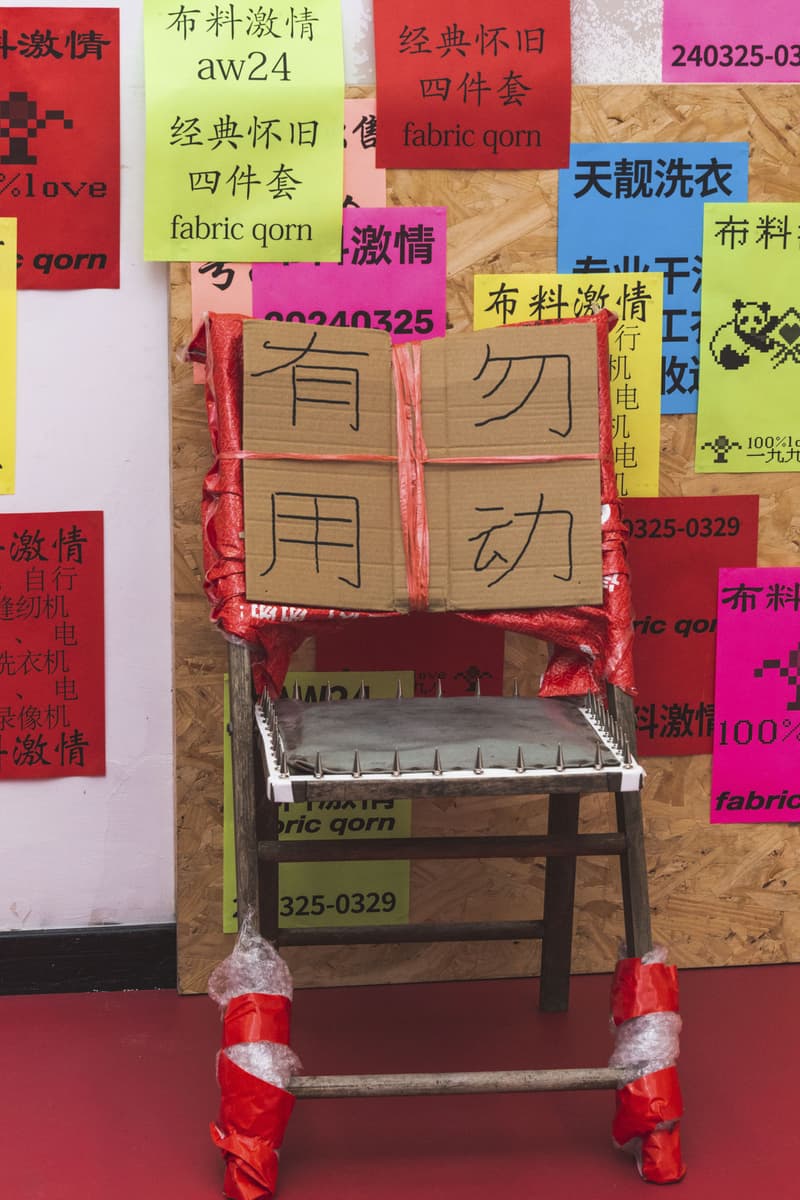 料激情
%love
qorn
布料激情
aw24
经典怀旧
四件套
fabric qorn
经典怀旧
四件套
fabric qorn
240325-03
售
号
料激情
20240325
天靓洗衣
专业干洗
工衣
收送
布料激情
行
机
电
机
电
布料
100%lo
一九九
有 勿
用 动
激情
自行
缝纫机
、 电
洗衣机
、 电
录像机
料激情
0325-0329
ric qor
料激情
布料
100%
fabric
AW24
布料激情
bric qorn
325-0329